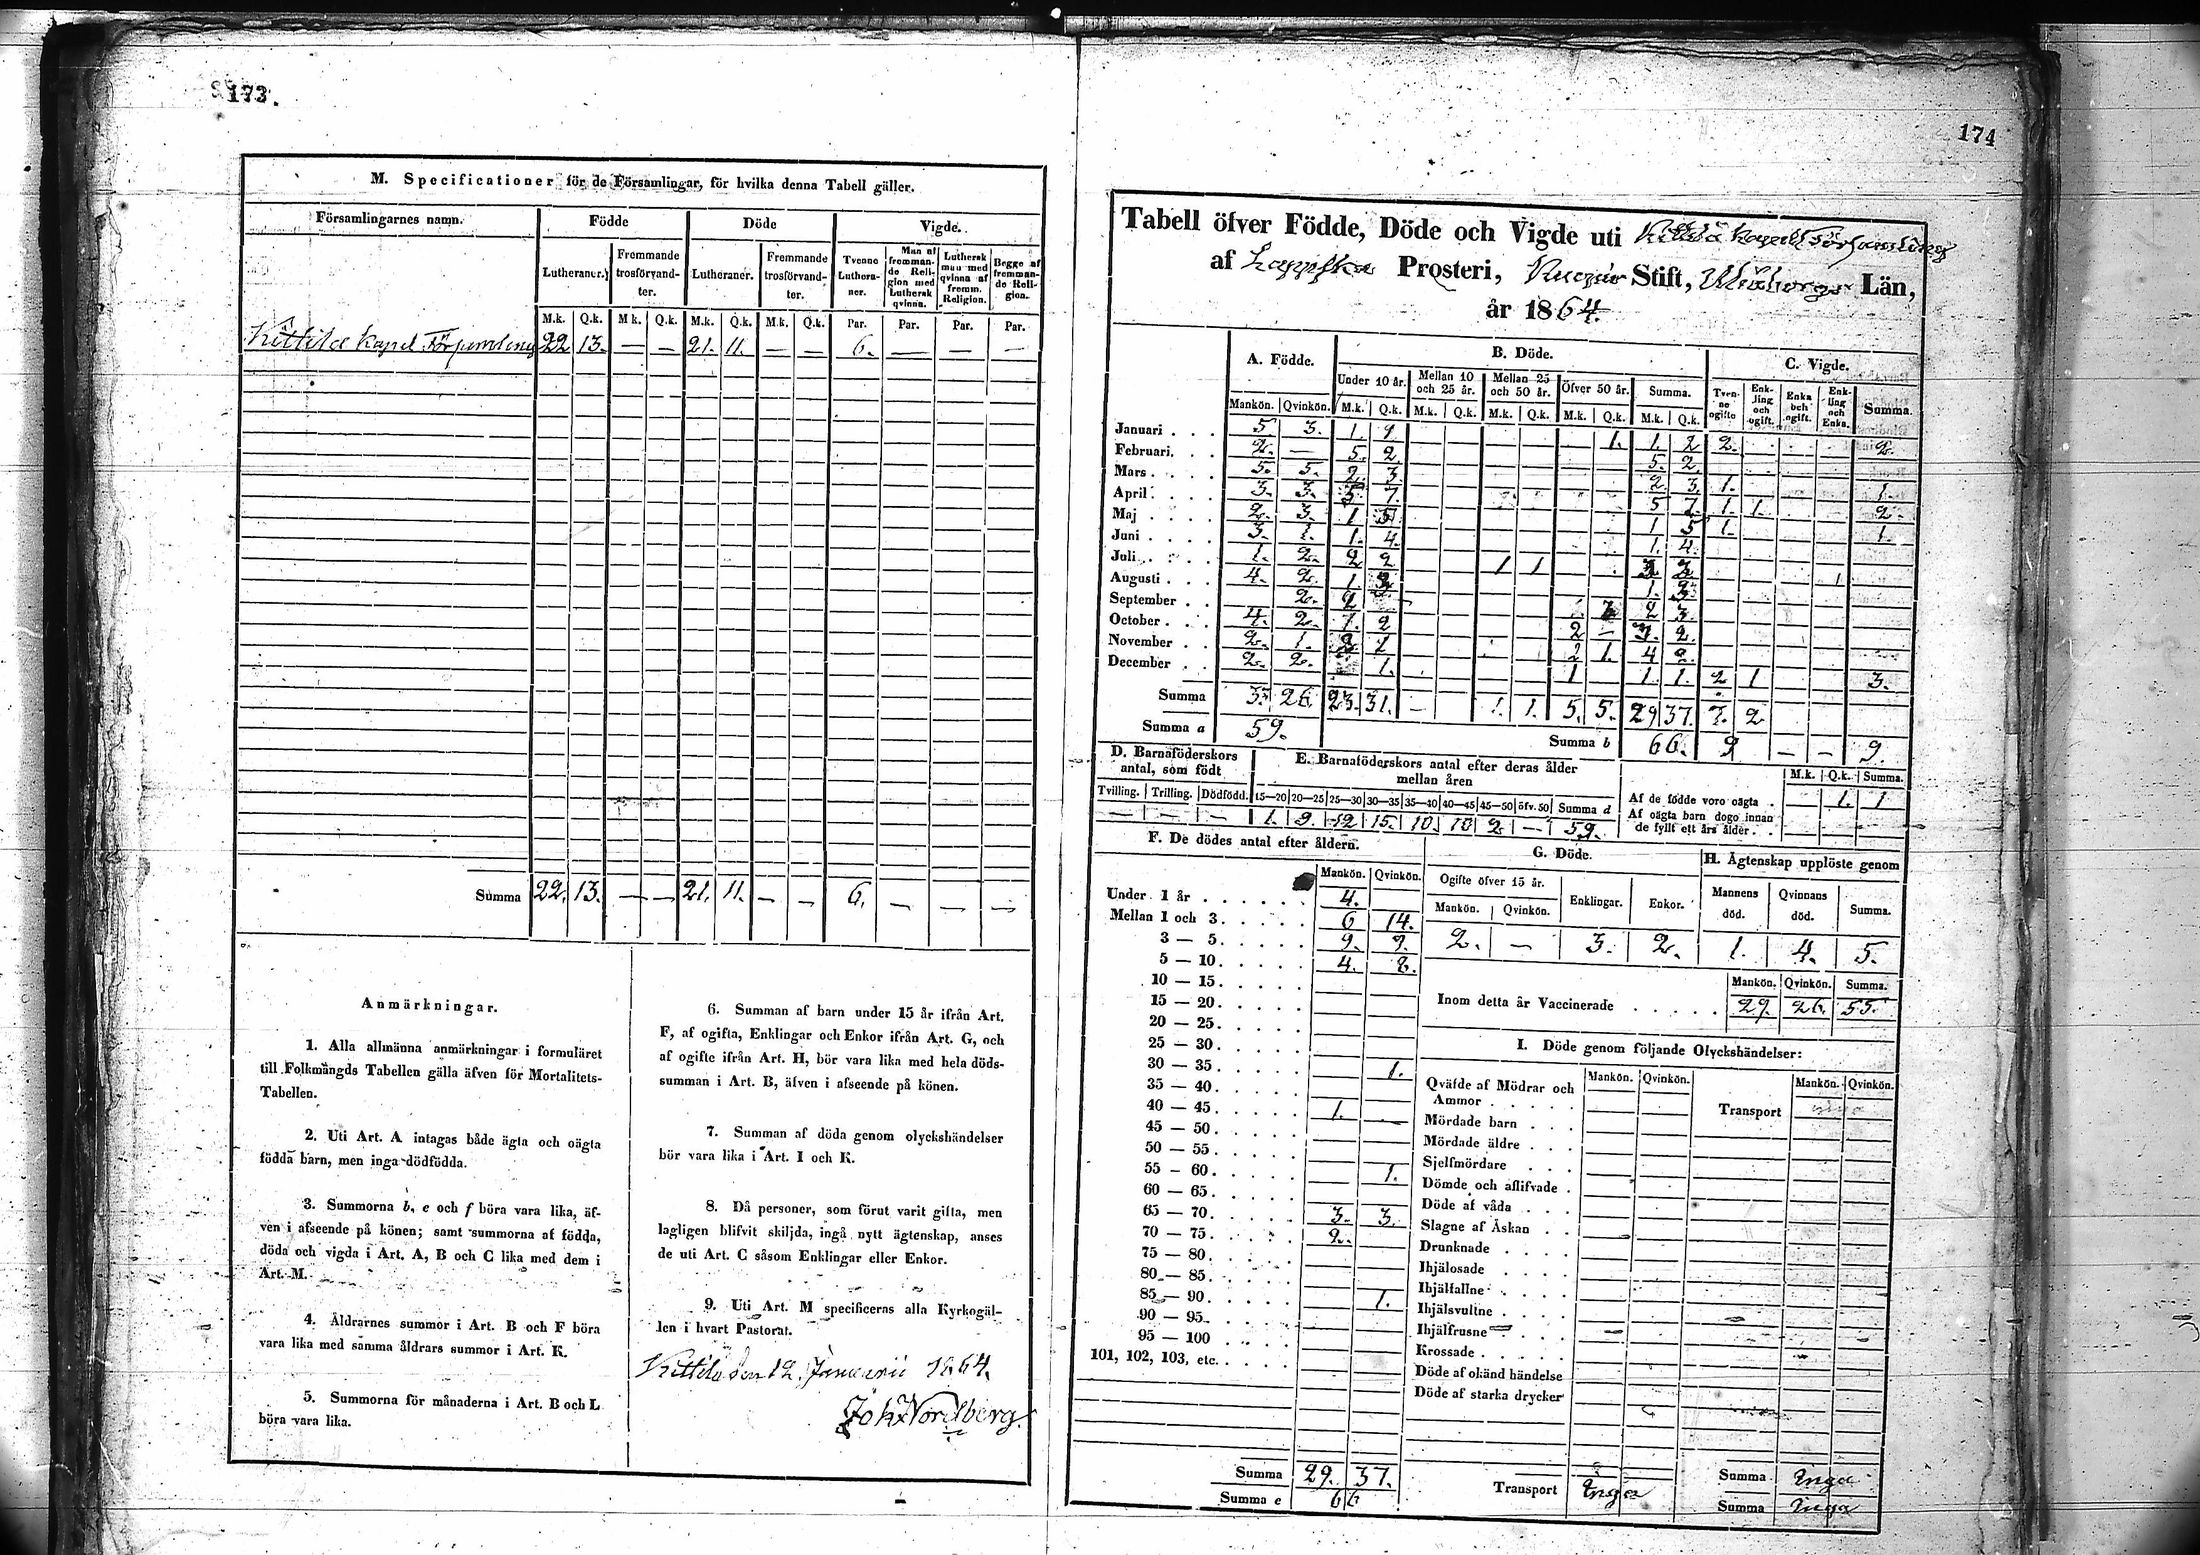 173.
M. Specificationer för de Församlingar, för hvilka denna Tabell gäller.
Församlingarnes namn. Födde Döde Vigde.
Lutheraner. Fremmande trosförvandter. Lutheraner. Fremmande trosförvandter. Tvenne Lutheraner. Man af fremmande Religion med Luthersk qvinna. Luthersk man med qvinna af fremm. Religion. Begge af fremmande Religion.
M.k. Q.k. M.k. Q.k. M.k. Q.k. M.k. Q.k. Par. Par. Par. Par.
Kittilä Kapell Församling 22 13. — — 21. 11. — — 6. — — —
Summa 22. 13. — — 21. 11. — — 6. — — —
Anmärkningar.
1. Alla allmänna anmärkningar i formuläret
till Folkmängds Tabellen gälla äfven för Mortalitets-
Tabellen.
2. Uti Art. A intagas både ägta och oägta
födda barn, men inga dödfödda.
3. Summorna b, e och f böra vara lika, äf-
ven i afseende på könen; samt summorna af födda,
döda och vigda i Art. A, B och C lika med dem i
Art. M.
4. Åldrarnes summor i Art. B och F böra
vara lika med samma åldrars summor i Art. K.
5. Summorna för månaderna i Art. B och L
böra vara lika.
6. Summan af barn under 15 år ifrån Art.
F, af ogifta, Enklingar och Enkor ifrån Art. G, och
af ogifte ifrån Art. H, bör vara lika med hela döds-
summan i Art. B, äfven i afseende på könen.
7. Summan af döda genom olyckshändelser
bör vara lika i Art. I och K.
8. Då personer, som förut varit gifta, men
lagligen blifvit skiljda, ingå nytt ägtenskap, anses
de uti Art. C såsom Enklingar eller Enkor.
9. Uti Art. M specificeras alla Kyrkogäl-
len i hvart Pastorat.
Kittilä den 12. Januarii 1864.
Joh. Nordberg.
174
Tabell öfver Födde, Döde och Vigde uti Kittilä Kapell Församling
af Lappska Prosteri, Kuopio Stift, Uleåborgs Län,
år 1864.
A. Födde. B. Döde. C. Vigde.
Under 10 år. Mellan 10 och 25 år. Mellan 25 och 50 år. Öfver 50 år. Summa. Tvenne ogifte Enkling och ogift. Enka och ogift. Enkling och Enka. Summa.
Mankön. Qvinkön. M.k. Q.k. M.k. Q.k. M.k. Q.k. M.k. Q.k. M.k. Q.k.
Januari . . . 5 3. 1. 1. 1. 2 2. 2.
Februari. . . 2. — 5. 2. 5. 2.
Mars . . . 5. 5. 2 3. 2 3. 1. 1.
April . . . 3. 3. 5 7. 5 7. 1. 1. 2.
Maj . . . . 2. 3. 1 5 1 5 1. 1.
Juni . . . . 3. 1. 1. 4. 1. 4.
Juli . . . . 1. 2. 2 2 1 1 3 3
Augusti . . . 4. 2. 1 3 1. 3.
September . . 2. 2 3 2 3.
October . . . 4. 2. 1. 2 2 — 3. 2.
November . . 2. 1. 2 1 2 1. 4 2.
December . . 2. 2. 1. 1 1. 1. 2 1 3.
Summa 33. 26. 23. 31. — 1. 1. 5. 5. 29 37. 7. 2
Summa a 59. Summa b 66. 9 — — 9.
D. Barnaföderskors antal, som födt
Tvilling. Trilling. Dödfödd.
— — —
E. Barnaföderskors antal efter deras ålder mellan åren
15—20 20—25 25—30 30—35 35—40 40—45 45—50 öfv. 50 Summa d
1. 9. 12 15. 10. 10 2 — 59.
M.k. Q.k. Summa.
Af de födde voro oägta . 1. 1
Af oägta barn dogo innan
de fyllt ett års ålder . .
F. De dödes antal efter åldern.
Mankön. Qvinkön.
Under 1 år . . . . . . 4.
Mellan 1 och 3. . . . . 6 14.
3 — 5. . . . . 9. 9.
5 — 10. . . . . 4. 8.
10 — 15. . . . .
15 — 20. . . . .
20 — 25. . . . .
25 — 30. . . . .
30 — 35. . . . . 1.
35 — 40. . . . .
40 — 45. . . . . 1.
45 — 50. . . . .
50 — 55. . . . .
55 — 60. . . . . 1.
60 — 65. . . . .
65 — 70. . . . . 3. 3.
70 — 75. . . . . 2.
75 — 80. . . . .
80 — 85. . . . .
85 — 90. . . . . 1.
90 — 95. . . . .
95 — 100 . . . .
101, 102, 103, etc. . . . .
Summa 29. 37.
Summa e 66
G. Döde.
Ogifte öfver 15 år. Enklingar. Enkor.
Mankön. Qvinkön.
2. — 3. 2.
H. Ägtenskap upplöste genom
Mannens död. Qvinnans död. Summa.
1. 4. 5.
Mankön. Qvinkön. Summa.
Inom detta år Vaccinerade . . . . . 29. 26. 55.
I. Döde genom följande Olyckshändelser:
Mankön. Qvinkön. Mankön. Qvinkön.
Qväfde af Mödrar och
Ammor . . . . . Transport
Mördade barn . . .
Mördade äldre . . .
Sjelfmördare . . .
Dömde och aflifvade .
Döde af våda . . .
Slagne af Åskan . .
Drunknade . . . .
Ihjälosade . . . .
Ihjälfallne . . . .
Ihjälsvultne . . . .
Ihjälfrusne . . .
Krossade . . . . .
Döde af okänd händelse
Döde af starka drycker
Transport Inga
Summa Inga
Summa Inga